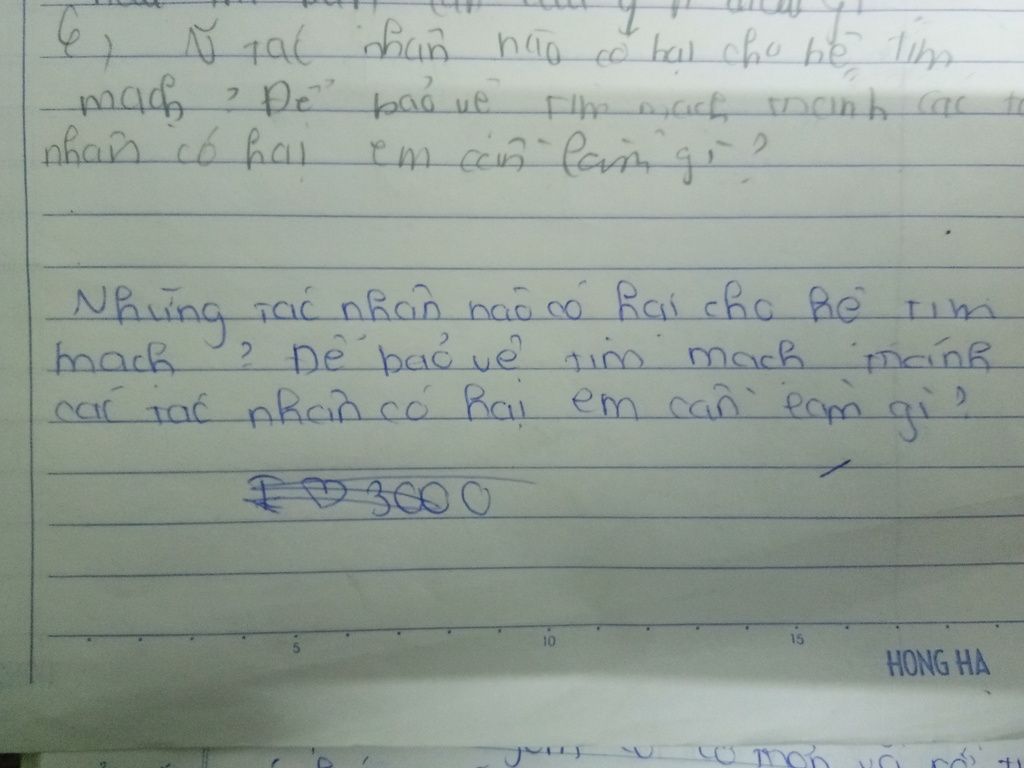 6, N tác nhân nào có hại cho hệ tim
mạch? Để bảo vệ tim mạch tránh các
nhân có hại em cần làm gì?
Những tác nhân nào có hại cho hệ tim
mạch? Để bảo vệ tim mạch tránh
các tác nhân có hại em cần làm gì?
3000
5 10 15
HONG HA